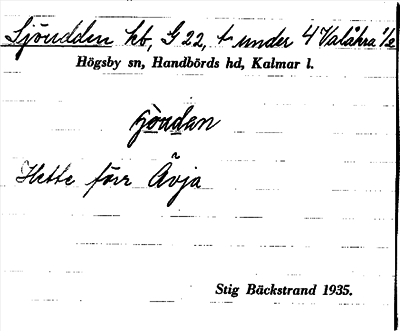 Sjöudden hb, G 22, t under 4 Valåkra 1/2
Högsby sn, Handbörds hd, Kalmar l.
jòu̇dan
Hette förr Ävja
Stig Bäckstrand 1935.